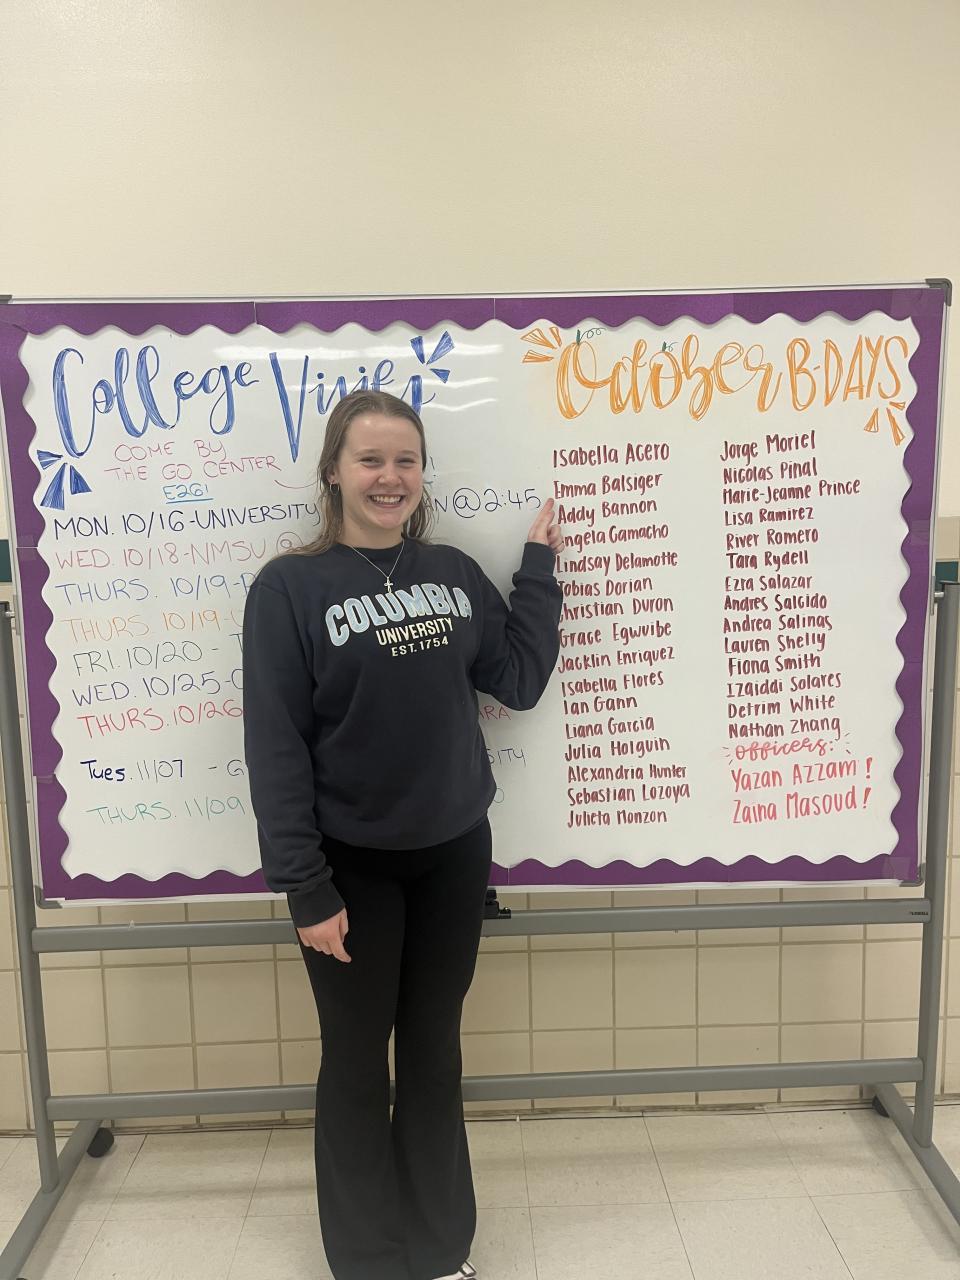 College Visits
COME BY
THE GO CENTER
E261
MON. 10/16-UNIVERSITY @2:45
WED. 10/18-NMSU @
THURS. 10/19-
THURS. 10/19-
FRI. 10/20 -
WED. 10/25-
THURS. 10/26
Tues. 11/07 - G
THURS. 11/09
COLUMBIA
UNIVERSITY
EST. 1754
October B-DAYS
Isabella Acero
Emma Balsiger
Addy Bannon
Angela Camacho
Lindsay Delamotte
Tobias Dorian
Christian Duron
Grace Egwuibe
Jacklin Enriquez
Isabella Flores
Ian Gann
Liana Garcia
Julia Holguin
Alexandria Hunter
Sebastian Lozoya
Julieta Monzon
Jorge Moriel
Nicolas Pinal
Marie-Jeanne Prince
Lisa Ramirez
River Romero
Tara Rydell
Ezra Salazar
Andres Salcido
Andrea Salinas
Lauren Shelly
Fiona Smith
Izaiddi Solares
Detrim White
Nathan Zhang
Officers:
Yazan Azzam!
Zaina Masoud!